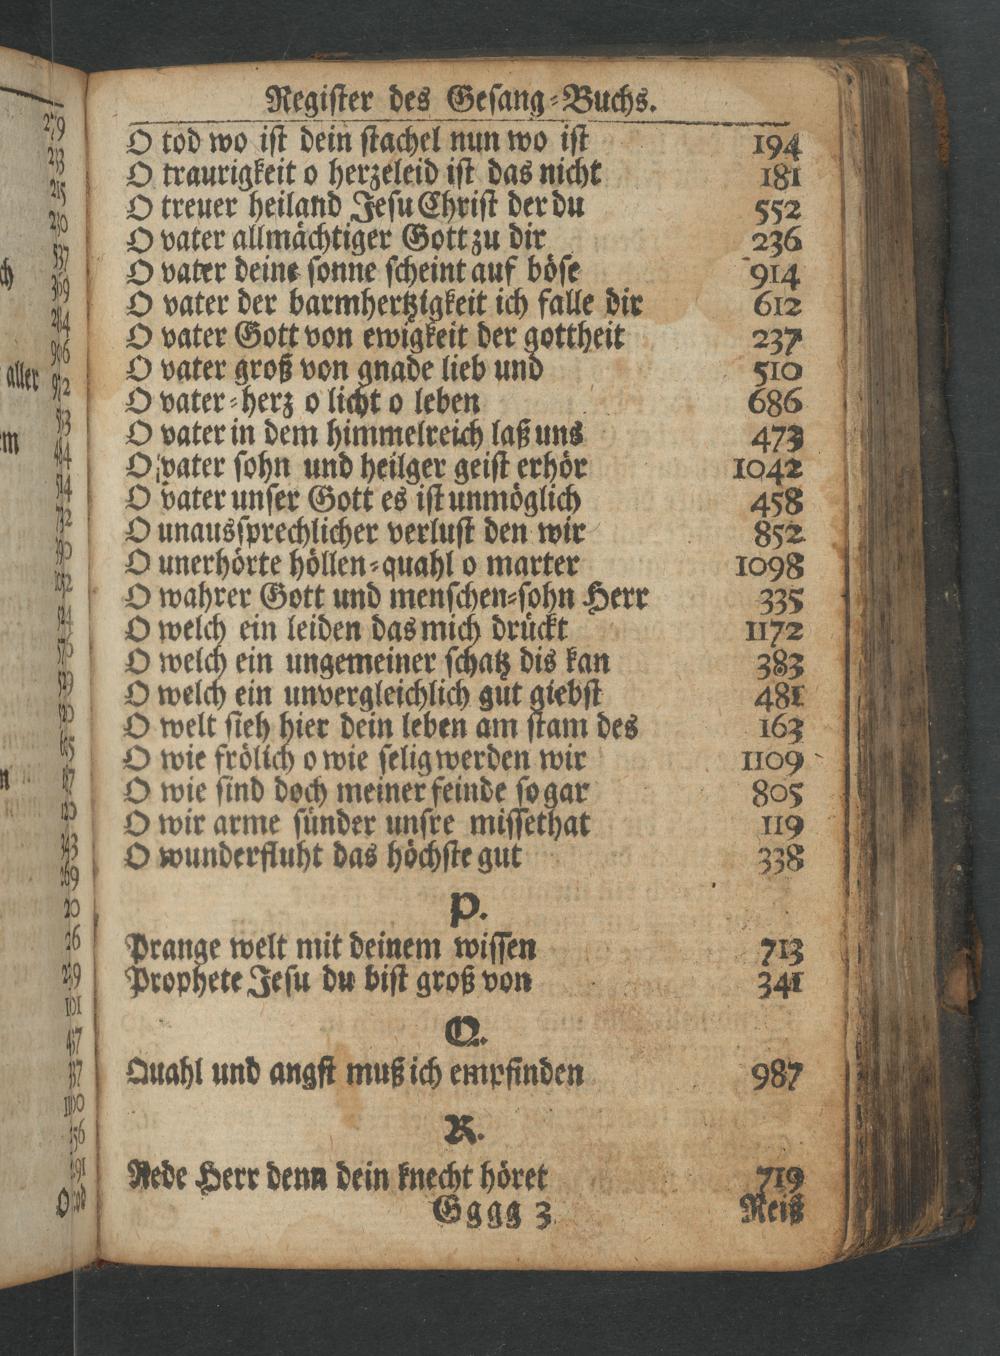 Register des Gesang-Buchs.
O tod wo ist dein stachel nun wo ist 194
O traurigkeit o herzeleid ist das nicht 181
O treuer heiland Jesu Christ der du 552
O vater allmächtiger Gott zu dir 236
O vater deine sonne scheint auf böse 914
O vater der barmhertzigkeit ich falle dir 612
O vater Gott von ewigkeit der gottheit 237
O vater groß von gnade lieb und 510
O vater-herz o licht o leben 686
O vater in dem himmelreich laß uns 473
O vater sohn und heilger geist erhör 1042
O vater unser Gott es ist unmöglich 458
O unaussprechlicher verlust den wir 852
O unerhörte höllen-quahl o marter 1098
O wahrer Gott und menschen-sohn Herr 335
O welch ein leiden das mich drückt 1172
O welch ein ungemeiner schatz dis kan 383
O welch ein unvergleichlich gut giebst 481
O welt sieh hier dein leben am stam des 163
O wie frölich o wie selig werden wir 1109
O wie sind doch meiner feinde so gar 805
O wir arme sünder unsre missethat 119
O wunderfluht das höchste gut 338
P.
Prange welt mit deinem wissen 713
Prophete Jesu du bist groß von 341
Q.
Quahl und angst muß ich empfinden 987
R.
Rede Herr denn dein knecht höret 719
Gggg 3 Reiß